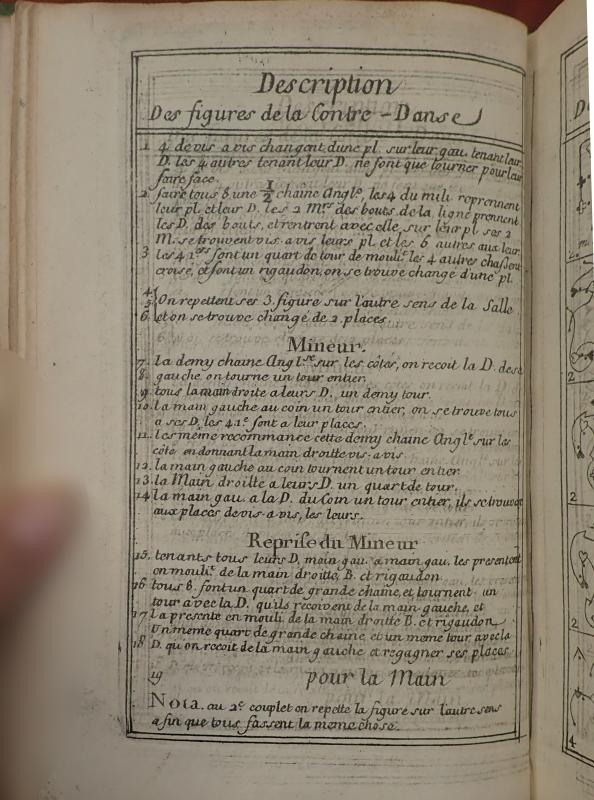 Description
Des figures de la Contre-Danse
1. 4 de vis a vis changent dune pl. sur leur gau. tenant leur
D. les 4 autres tenant leur D. ne font que tourner pour leur
faire face.
2. faire tous 8 une 1/2 chaine Angl.e, les 4 du mili. reprennent
leur pl. et leur D. les 2 M.rs des bouts de la ligne prennent
les D. des bouts, et rentrent avec elle sur leur pl ses 2
M. se trouvent vis. a vis leurs pl. et les 6 autres aux leur
3. les 4 1.ers font un quart de tour de mouli.t les 4 autres chassent
croisé, et font un rigaudon, on se trouve changé d'une pl.
4.
5. On repettent ses 3. figure sur l'autre sens de la Salle
6. et on se trouve changé de 2. places.
Mineur.
7. la demy chaine Angl.se sur les côtés, on recoit la D. des
8. gauche on tourne un tour entier.
9. tous la main droite a leurs D. un demy tour.
10. la main gauche au coin un tour entier, on se trouve tous
a ses D. les 4 1.e font a leur places.
11. les même recommance cette demy chaine Angl.e sur les
côté en donnant la main droitte vis-a-vis
12. la main gauche au coin tournent un tour entier.
13. la Main droitte a leurs D. un quart de tour.
14. la main gau. a la D. du Coin un tour entier, ils se trouvent
aux places de vis-a-vis, les leurs.
Reprise du Mineur
15. tenants tous leurs D, main gau. a main gau. les presentent
on mouli.t de la main droitte, B. et rigaudon.
16 tous 8. font un quart de grande chaine, et tournent un
tour avec la D. qu'ils recoivent de la main gauche, et
17 la presente en mouli. de la main droitte B. et rigaudon
Un meme quart de grande chaine, et un meme tour avec la
18 D. qu on recoit de la main gauche et regagner ses places
19 pour la Main
Nota. au 2.e couplet on repette la figure sur l'autre sens
a fin que tous fassent la meme chose.